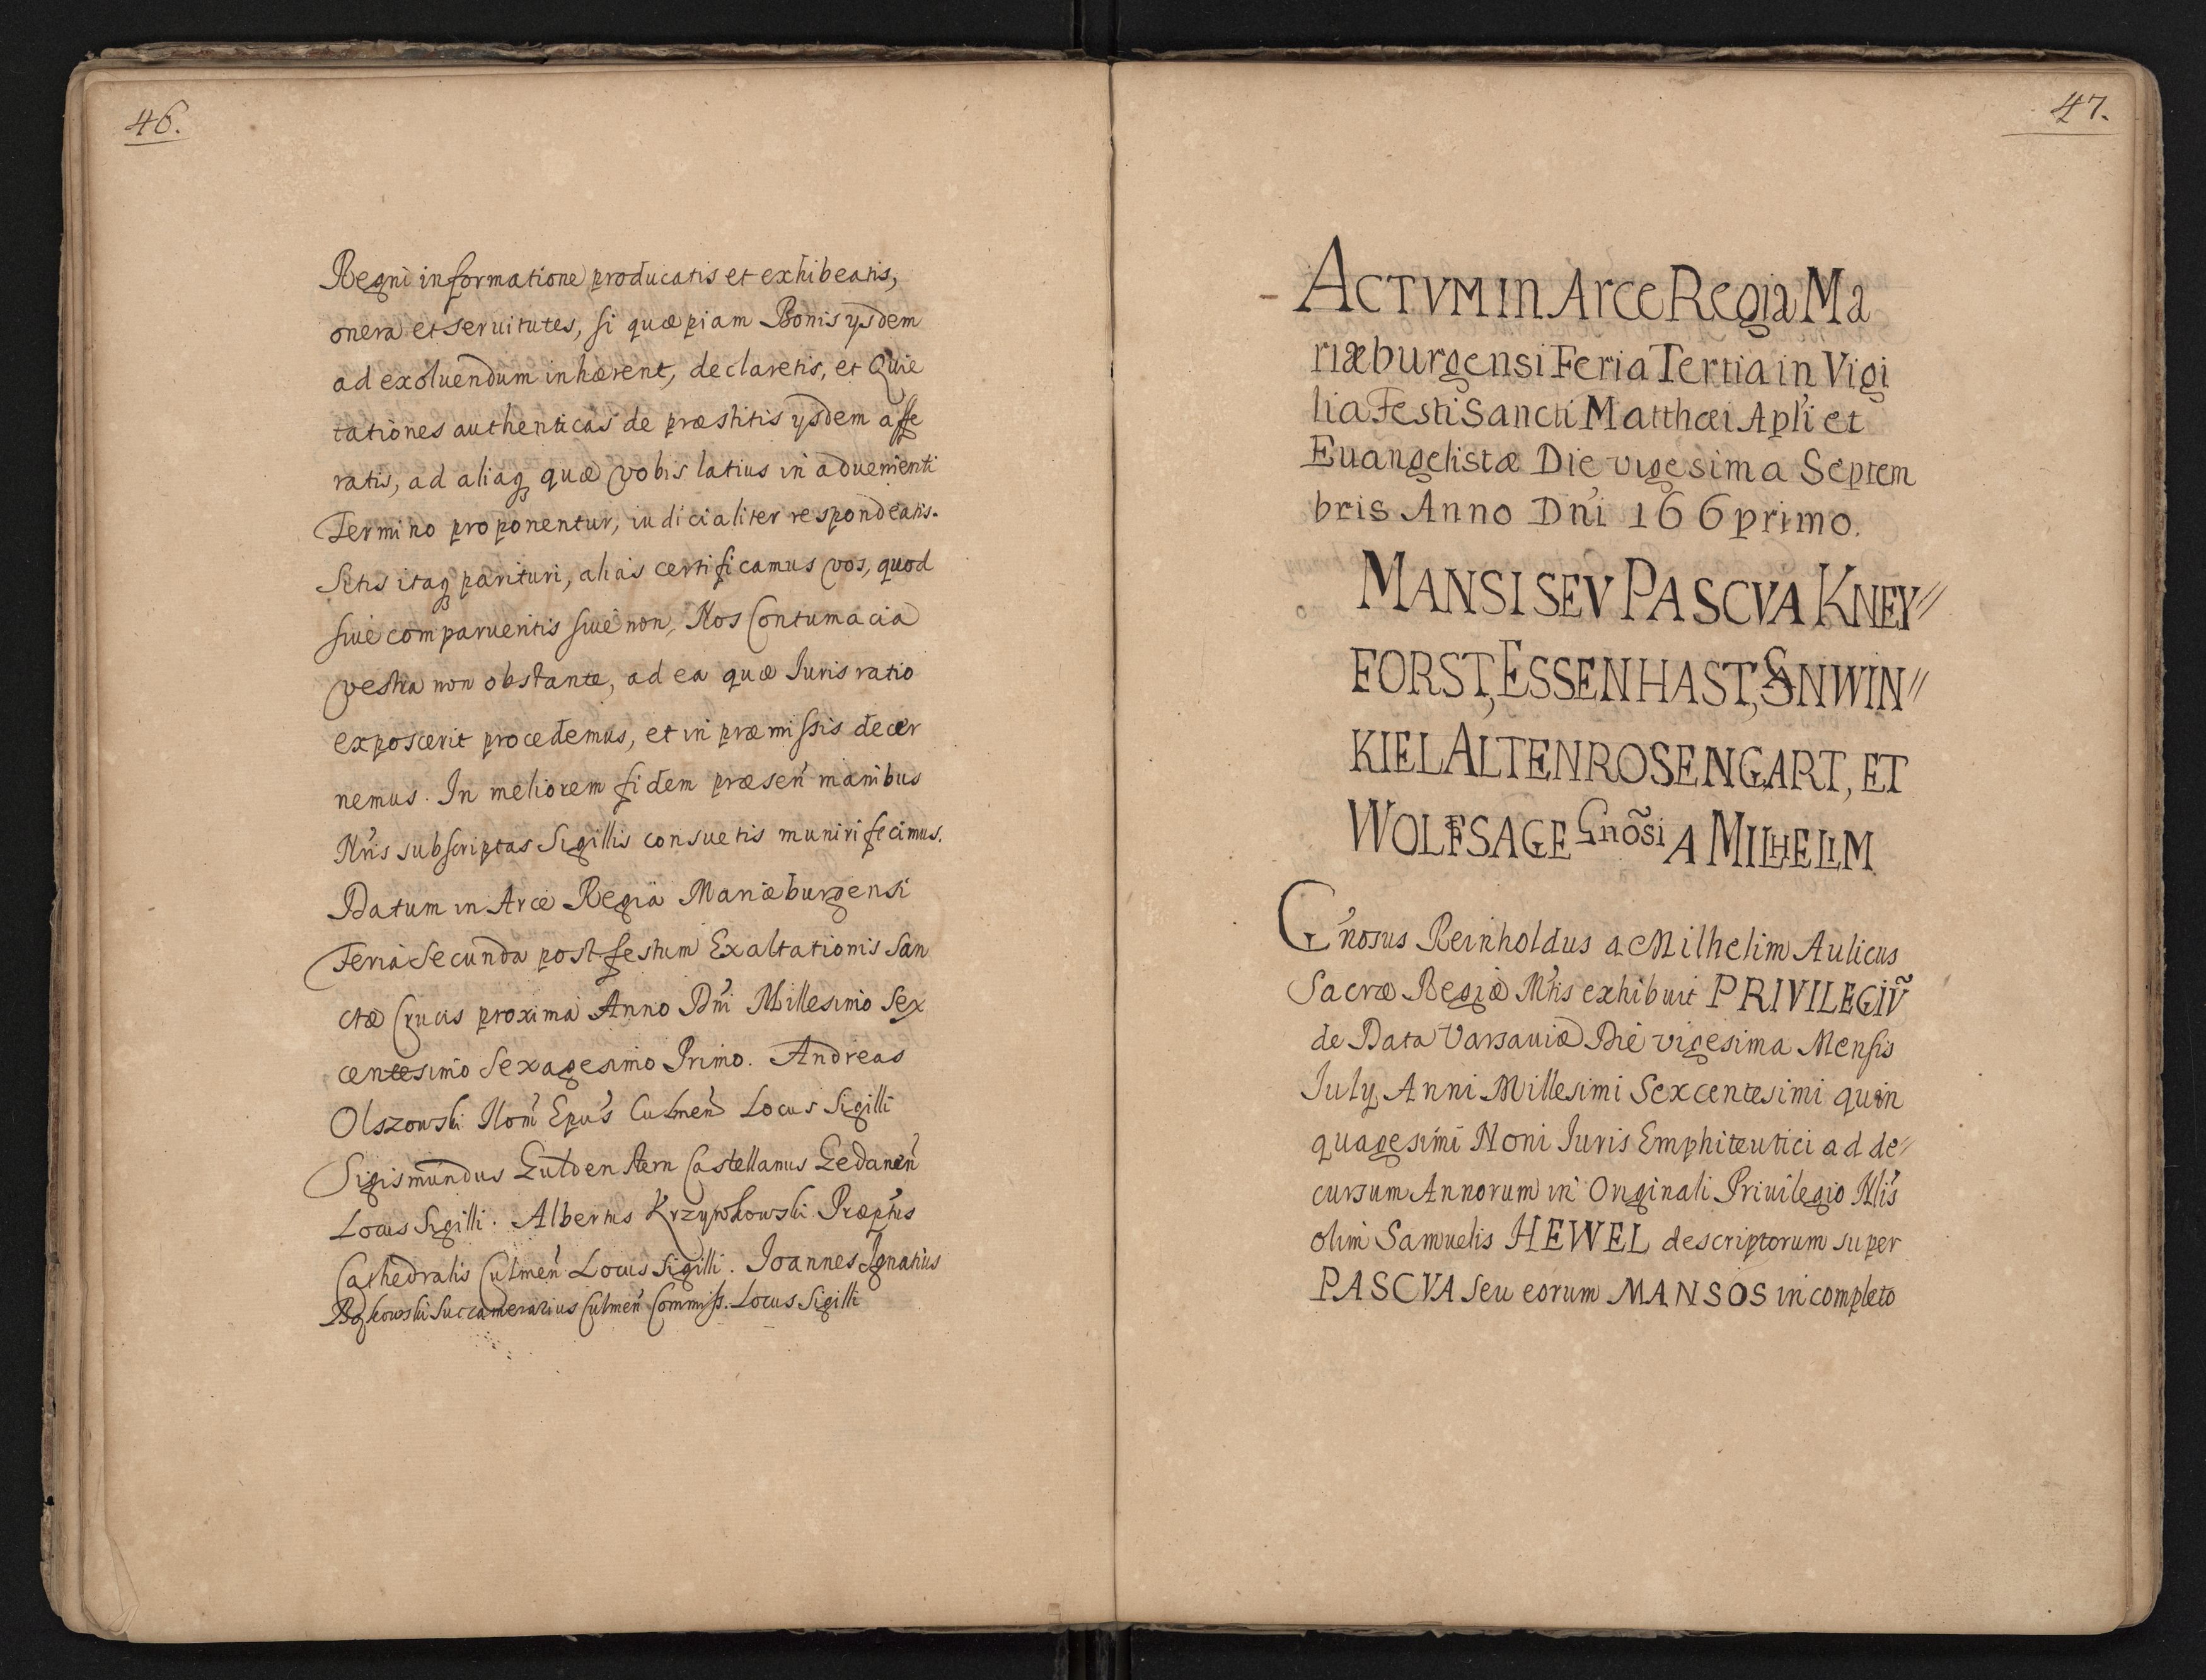 46.
Regni informatione producatis et exhibeatis,
onera et seruitutes, si quæpiam Bonis ysdem
ad exoluendum inhærent, declaretis, et Quie
tationes authenticas de præstitis ysdem affe
ratis, ad aliaq quæ vobis latius in aduenienti
Termino proponentur, iudicialiter respondeatis.
Sitis itaq parituri, alias certificamus vos, quod
siue comparueritis siue non, Nos Contumacia
vestra non obstante, ad ea quæ Iuris ratio
exposcerit procedemus, et in præmissis decer
nemus. In meliorem fidem præsen̄ manibus
Nr̄is subscriptas Sigillis consuetis muniri fecimus.
Datum in Arce Regia Mariæburgensi
Feria Secunda post festum Exaltationis San
ctæ Crucis proxima Anno Dn̄i Millesimo Sex
centesimo Sexagesimo Primo. Andreas
Olszowski Nom̄ Epūs Culmen̄ Locus Sigilli
Sigismundus Guldenstern Castellanus Gedanen̄
Locus Sigilli. Albertus Præptūs
Cathedralis Culmen̄ Locus Sigilli. Ioannes Ignatius
Bąkowski Succamerarius Culmen̄ Commiss. Locus Sigilli
47.
ACTVM in Arce Regia Ma
riæburgensi Feria Tertia in Vigi
lia Festi Sancti Matthæi Apl̄i et
Euangelistæ Die vigesima Septem
bris Anno Dn̄i 166primo.
MANSI SEV PASCVA KNEY//
FORST, ESSENHAST, SANWIN//
KIEL ALTENROSENGART, ET
WOLFSAGE Gnõsi A MILHELIM
Gn̄osus Reinholdus a Milhelim Aulicus
Sacræ Regiæ Mt̄is exhibuit PRIVILEGIṼ
de Data Varsauiæ Die vigesima Mensis
July, Anni Millesimi Sexcentesimi quin
quagesimi Noni Iuris Emphiteutici ad de/
cursum Annorum in Originali Priuilegio Nl̄is
olim Samuelis HEWEL descriptorum super
PASCVA seu eorum MANSOS in completo